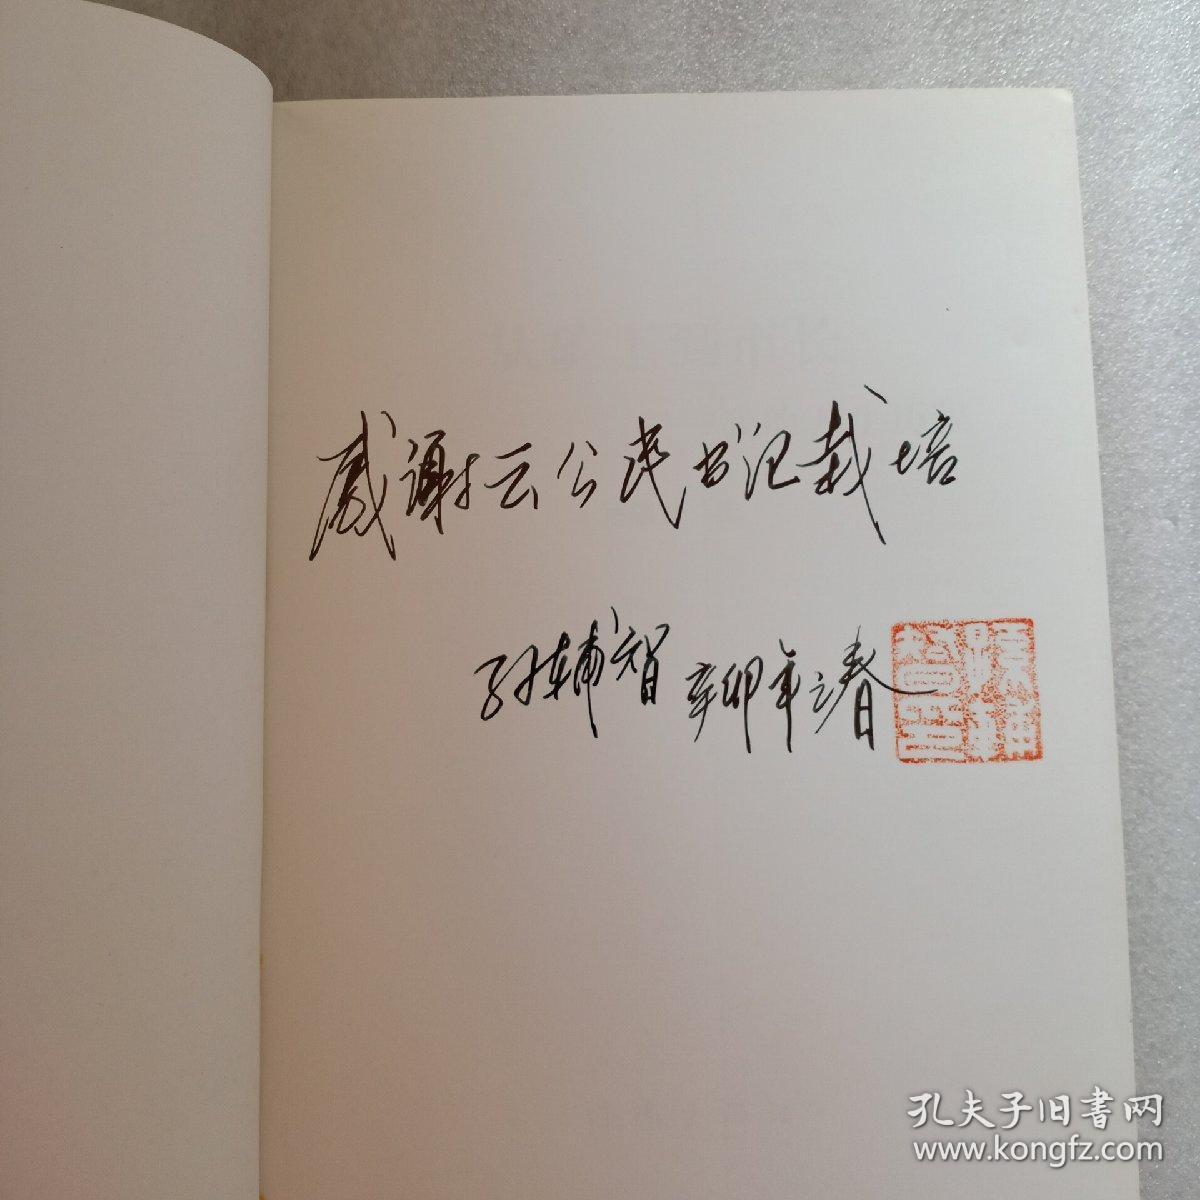 感谢云公民书记栽培
孙辅智 辛卯年之春
孔夫子旧书网
www.kongfz.com